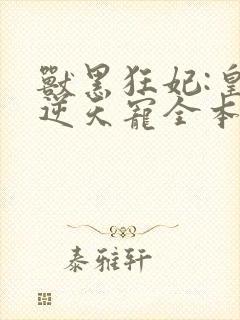 獸黑狂妃:皇
逆天寵全本
泰雅轩